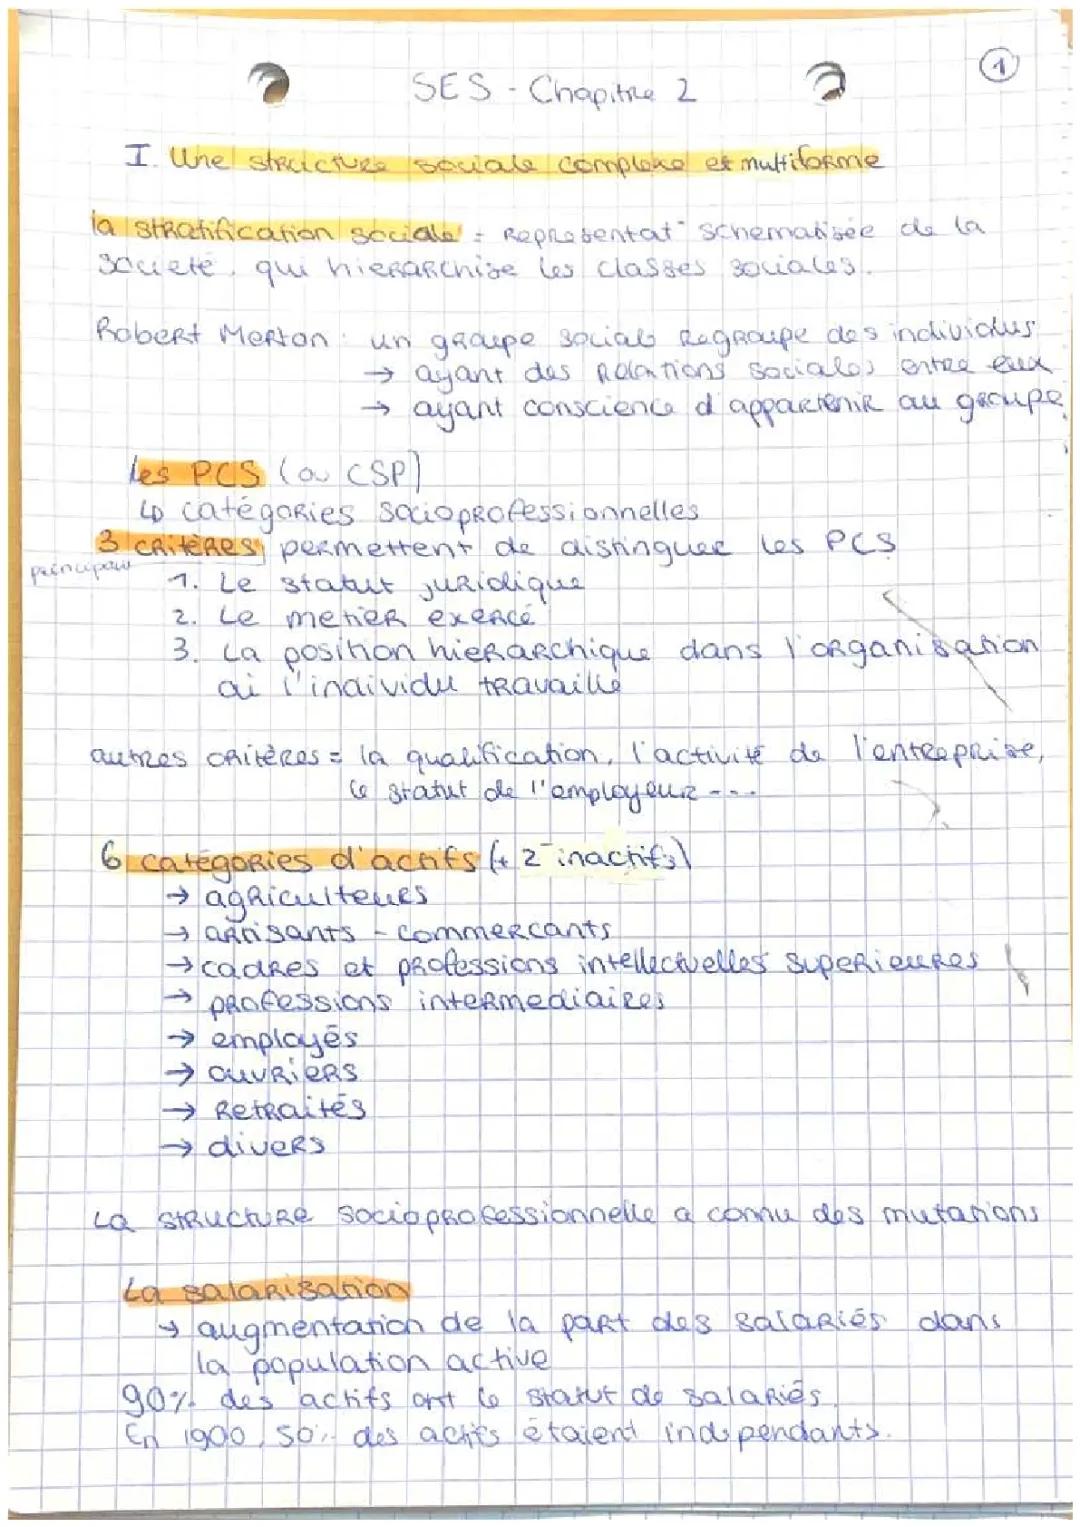 1
SES - Chapitre 2
I. Une structure sociale complexe et multiforme
la stratification sociale = Representat° schematisée de la
societé, qui hierarchise les classes sociales.
Robert Merton : un groupe social Regroupe des individus
→ ayant des relations sociales entre eux
→ ayant conscience d'appartenir au groupe
Les PCS (ou CSP)
↳ catégories socioprofessionnelles
3 critères permettent de distinguer les PCS
principaux
1. Le statut juridique
2. Le metier exercé
3. La position hierarchique dans l'organisation
où l'individu travaille
autres critères = la qualification, l'activité de l'entreprise,
le statut de l'employeur ...
6 catégories d'actifs (+ 2 inactifs)
→ agriculteurs
→ artisants - commercants
→ cadres et professions intellectuelles superieures
→ professions intermediaires
→ employés
→ ouvriers
→ Retraités
→ divers
La structure socioprofessionnelle a connu des mutations
La salarisation
→ augmentation de la part des salariés dans
la population active
90% des actifs ont le statut de salariés.
En 1900, 50% des actifs étaient independants.